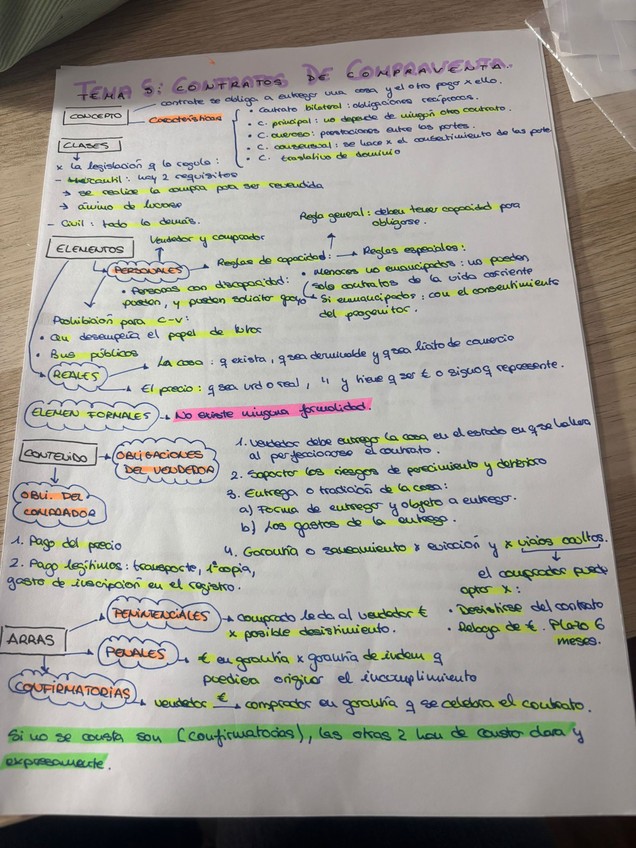 TEMA 5: CONTRATOS DE COMPRAVENTA.
CONCEPTO → contrate se obliga a entregar una cosa y el otro pagar x ello.
Características
• Contrato bilateral: obligaciones recíprocas.
• C. principal: no depende de ningún otro contrato.
• C. oneroso: prestaciones entre las partes.
• C. consensual: se hace x el consentimiento de las parte
• C. traslativo de dominio
CLASES
x La legislación q la regula:
- Mercantil: hay 2 requisitos
→ se realice la compra para ser revendida
→ ánimo de lucro
- Civil: todo lo demás.
ELEMENTOS
Vendedor y comprador
PERSONALES → Reglas de capacidad:
Regla general: deben tener capacidad para
obligarse.
→ Reglas especiales:
• Menores no emancipados: no pueden,
solo contratos de la vida corriente
Si emancipados: con el consentimiento
del progenitor.
• Personas con discapacidad:
pueden, y pueden solicitar apoyo
Prohibición para C-V:
• Qn desempeña el papel de tutor
• Bns públicos
REALES
→ La cosa: q exista, q sea determinable y q sea lícito de comercio
→ El precio: q sea vrd o real, y tiene q ser € o signo q represente.
ELEMEN FORMALES → No existe ninguna formalidad.
CONTENIDO → OBLIGACIONES
DEL VENDEDOR
1. Vendedor debe entregar la cosa en el estado en q se hallara
al perfeccionarse el contrato.
2. Soportar los riesgos de perecimiento y deterioro
3. Entrega o tradición de la cosa:
a) Forma de entregar y objeto a entregar.
b) Los gastos de la entrega.
4. Garantía o saneamiento x evicción y x vicios ocultos.
el comprador puede
optar x:
• Desistirse del contrato
• Rebaja de €. Plazo 6
meses.
OBLI. DEL
COMPRADOR
1. Pago del precio
2. Pago legítimos: transporte, 1ª copia,
gastos de inscripción en el registro.
ARRAS
PENITENCIALES → comprado le da al vendedor €
x posible desistimiento.
PENALES → € en garantía x garantía de indem q
pudiera originar el incumplimiento
CONFIRMATORIAS → vendedor € → comprador en garantía q se celebra el contrato.
Si no se consta son (confirmatorias), las otras 2 han de constar clara y
expresamente.